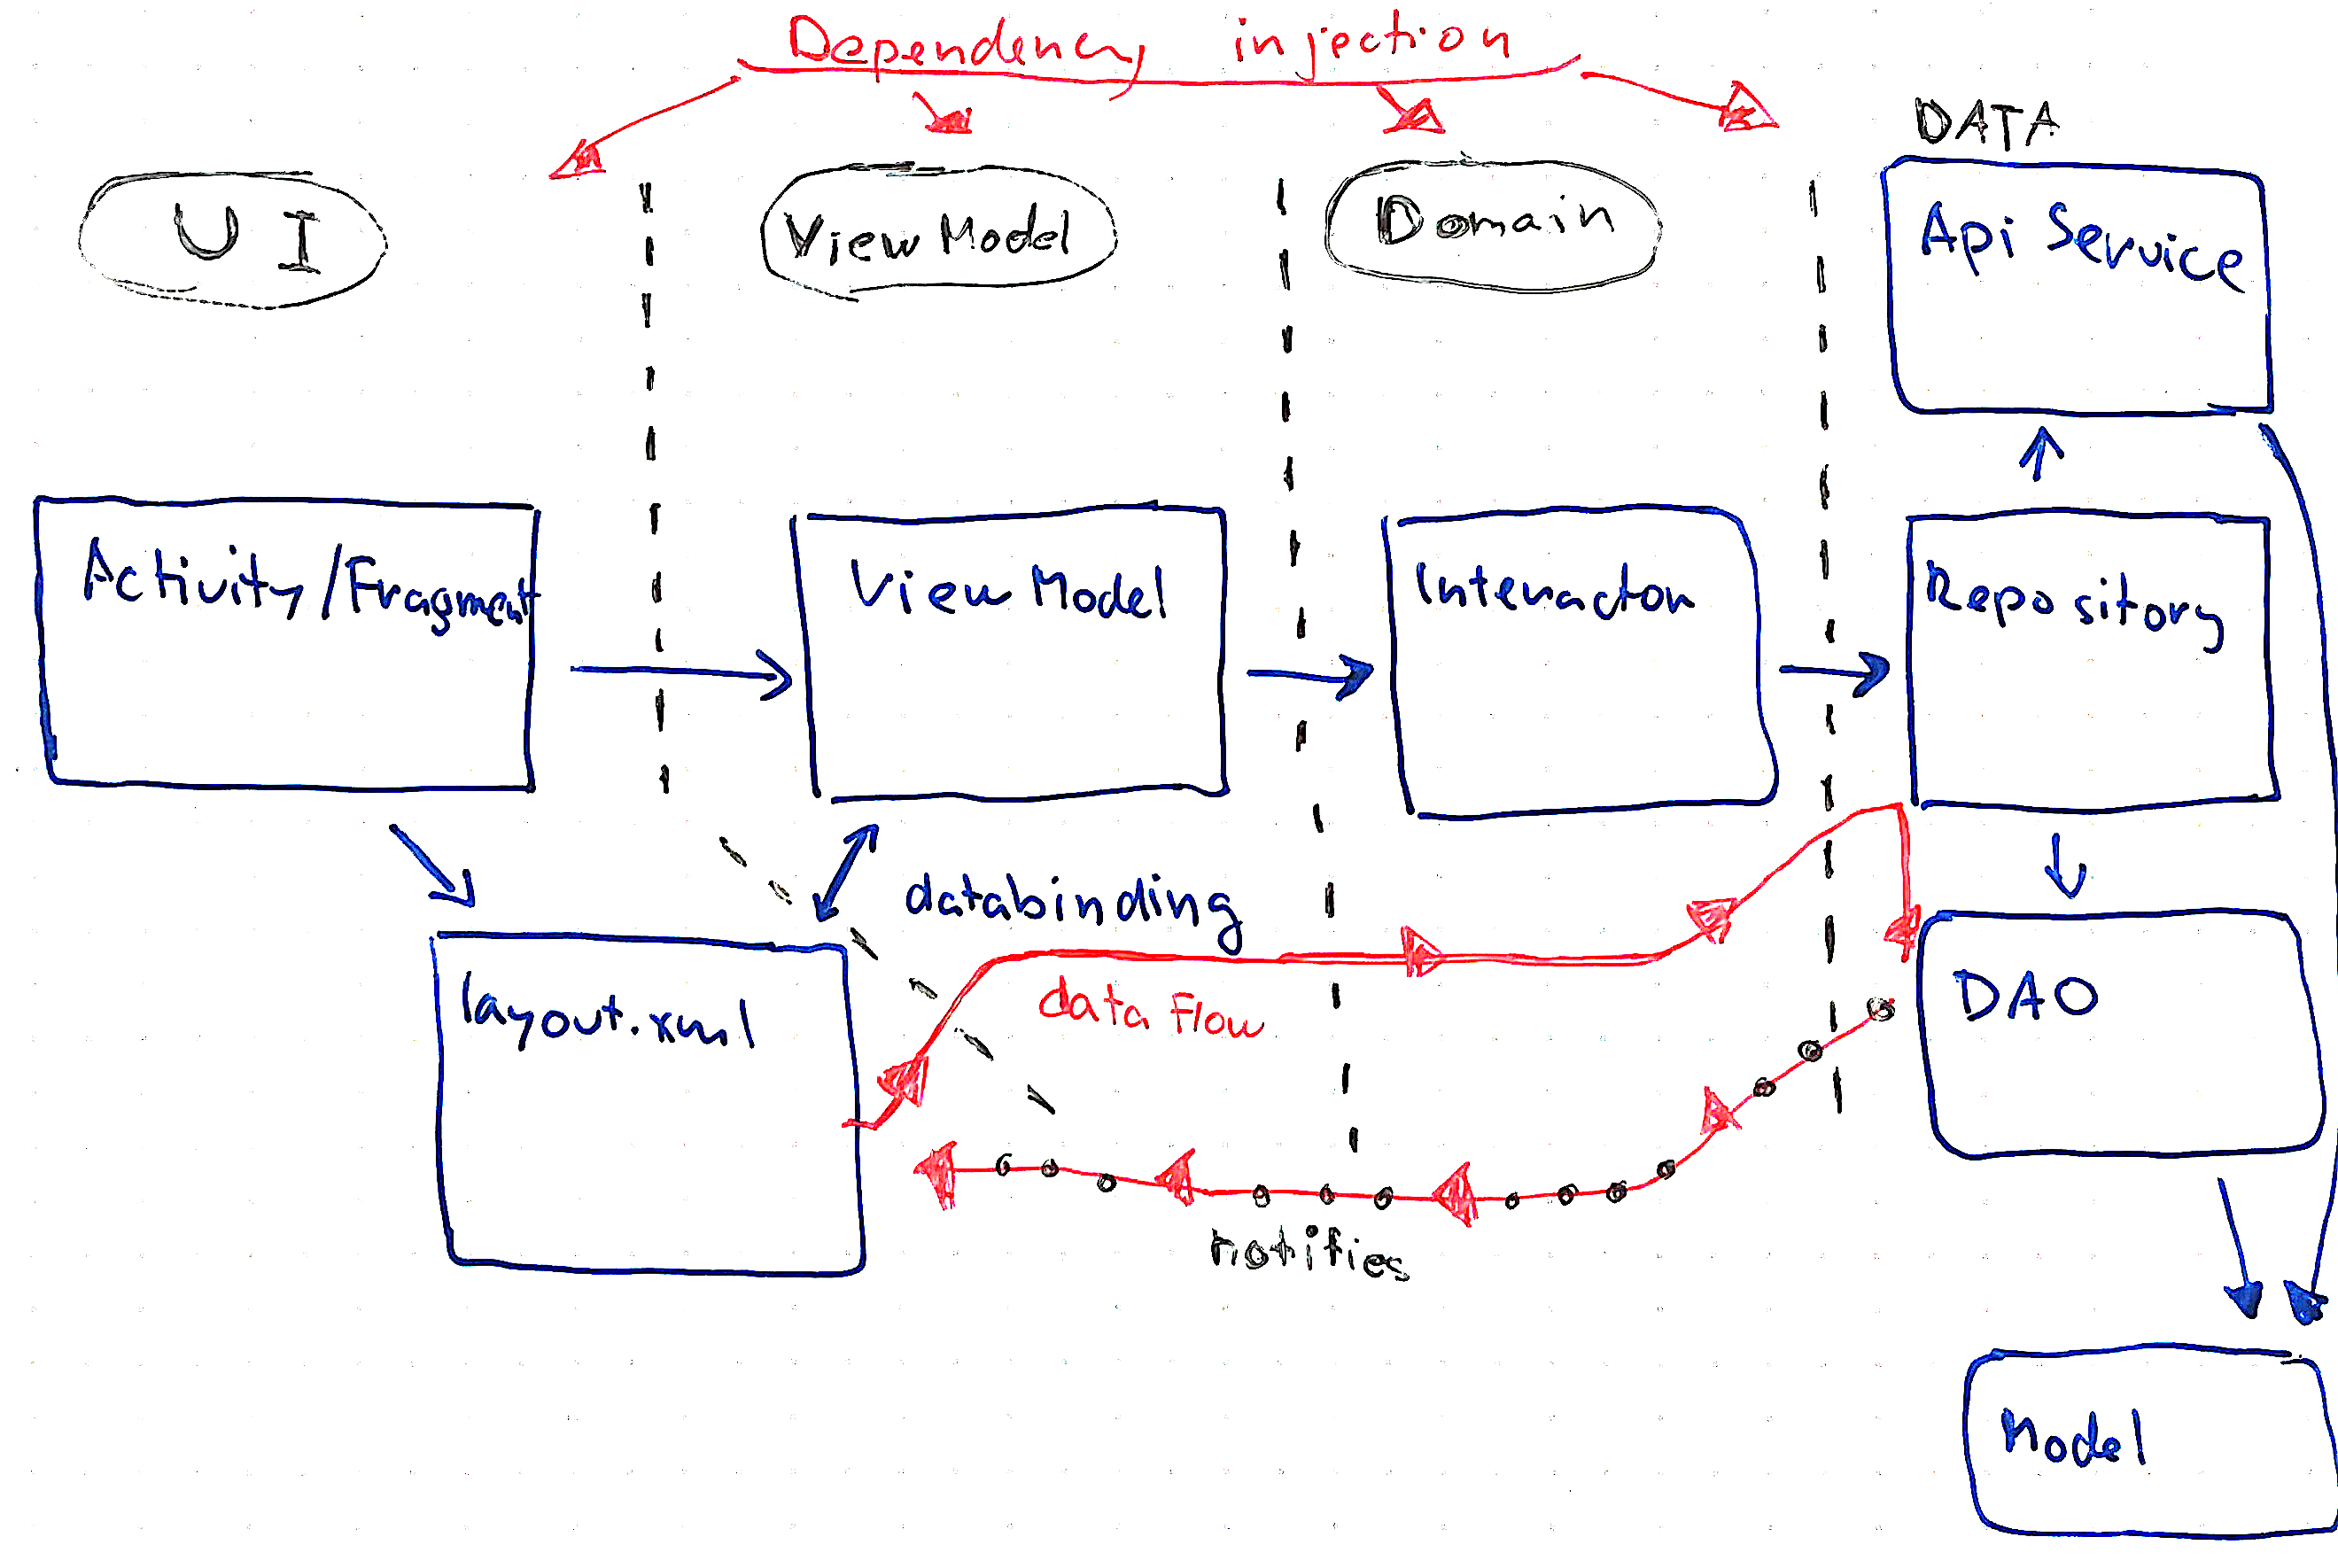 Dependency injection
DATA
UI
View Model
Domain
Api Service
Activity/Fragment
View Model
Interactor
Repository
databinding
layout.xml
data flow
DAO
notifies
Model